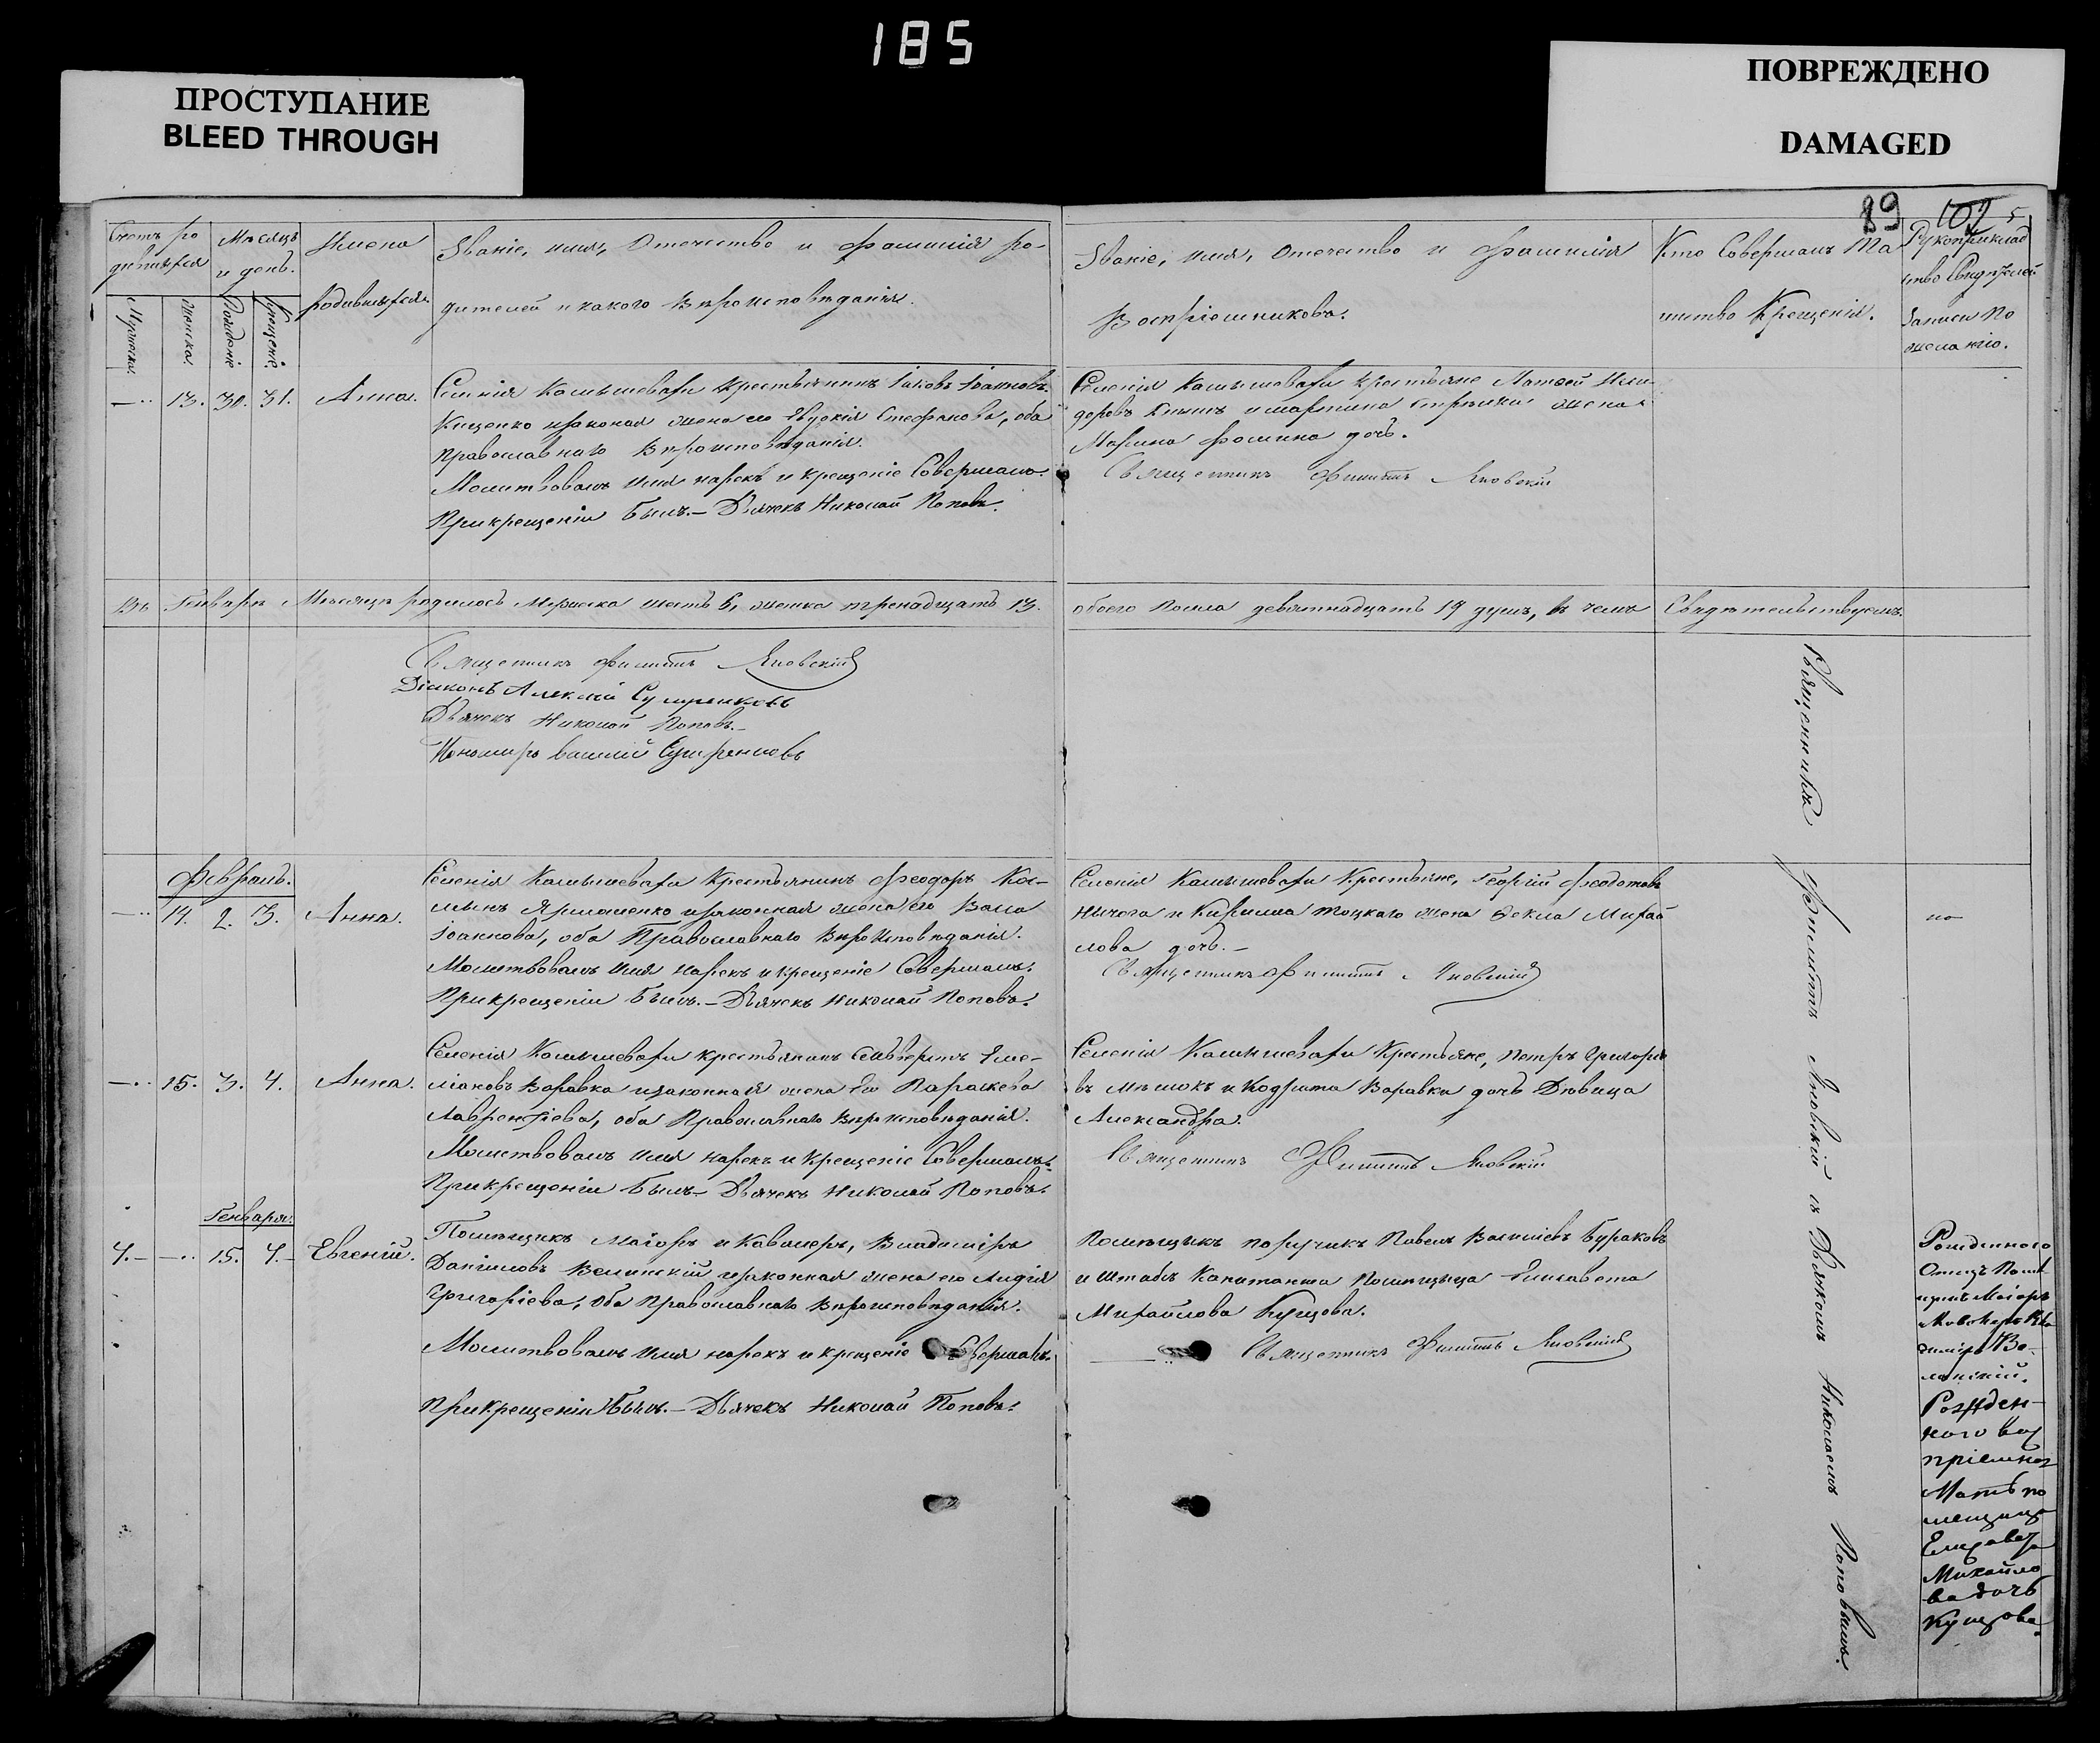 185
ПРОСТУПАНИЕ
BLEED THROUGH
ПОВРЕЖДЕНО
DAMAGED
89 102 5
Счетъ ро
дившихся
Мѣсяцъ
и день.
Мужеска.
Женска.
Рожденіе
Крещеніе.
Имена
родившихся.
Званіе, имя, Отечество и фамилія ро-
дителей и какого вѣроисповѣданія.
Званіе, имя, Отечество и фамилія
Воспріемниковъ.
Кто Совершалъ Та
инство Крещенія.
Рукоприклад
ство Свидѣтелей
Записи По
желанію.
13. 30. 31. Анна.
Селенія Камышевахи крестьянинъ Іаковъ Іоанновъ
Кищенко изаконая жена его Евдокія Стефанова, оба
православнаго Вѣроисповѣданія.
Молитвовалъ имя нарекъ и крещеніе Совершалъ.
Прикрещеніи Былъ.- Дьячекъ Николай Поповъ.
Селенія Камышевахи крестьяне Матвей
жена
Марина Фомина дочь.
Священникъ Филиппъ Яновскій
Въ Генварѣ Мѣсяцѣ родилось Мужеска шесть 6, женска тренадцать 13. обоего пола девятнадцать 19 душъ, въ чемъ Свидѣтельствуемъ.
Священникъ Филиппъ Яновскій
Діаконъ Алексѣй
Дьячекъ Николай Поповъ.-
Пономарь Василій
Февраль.
14. 2. 3. Анна.
Селенія Камышевахи Крестьянинъ Феодоръ Кос-
мынъ Ярмошенко изаконная жена его Васса
Іоаннова, оба Православнаго Вѣроисповѣданія.
Молитвовалъ Имя нарекъ и крещеніе Совершалъ.
Прикрещеніи Былъ.- Дьячекъ Николай Поповъ.
Селенія Камышевахи Крестьяне, Георгій Феодотовъ
и Кирилла жена Фекла Михай
лова дочь.-
Священникъ Филиппъ Яновскій
15. 3. 4. Анна.
Селенія Камышевахи крестьянинъ Еме-
ліановъ Варавка изаконная жена Его Параскева
Лаврентіева, оба Православнаго Вѣроисповѣданія.
Молитвовалъ имя нарекъ и Крещеніе Совершалъ.
Прикрещеніи Былъ- Дьячекъ Николай Поповъ.
Селенія Камышевахи Крестьяне, Петръ Григорье
въ и Кодрата Варавки дочь Дѣвица
Александра.
Священникъ Филиппъ Яновскій
Генваря.
4.- 15. 4.- Евгеній.
Помѣщикъ Маіоръ и Кавалеръ, Владиміръ
Даніиловъ Велинскій изаконная жена его Лидія
Григоріева, Оба Православнаго Вѣроисповѣданія.
Молитвовалъ Имя нарекъ и крещеніе Совершалъ.
Прикрещеніи Былъ.- Дьячекъ Николай Поповъ.
Помѣщикъ поручикъ Павелъ Василіевъ Бураковъ
и Штабсъ Капитанша Помѣщица Елисавета
Михайлова Купцова.
Священникъ Филиппъ Яновскій
Священникъ Филиппъ Яновскій съ Дьячкомъ Николаемъ Поповымъ.
Рожденного
Отецъ Помѣ
щикъ Маіоръ
Рожден-
ного вос
пріемная
Мать по
мещица
Елизавета
Михайло
ва дочь
Купцова.